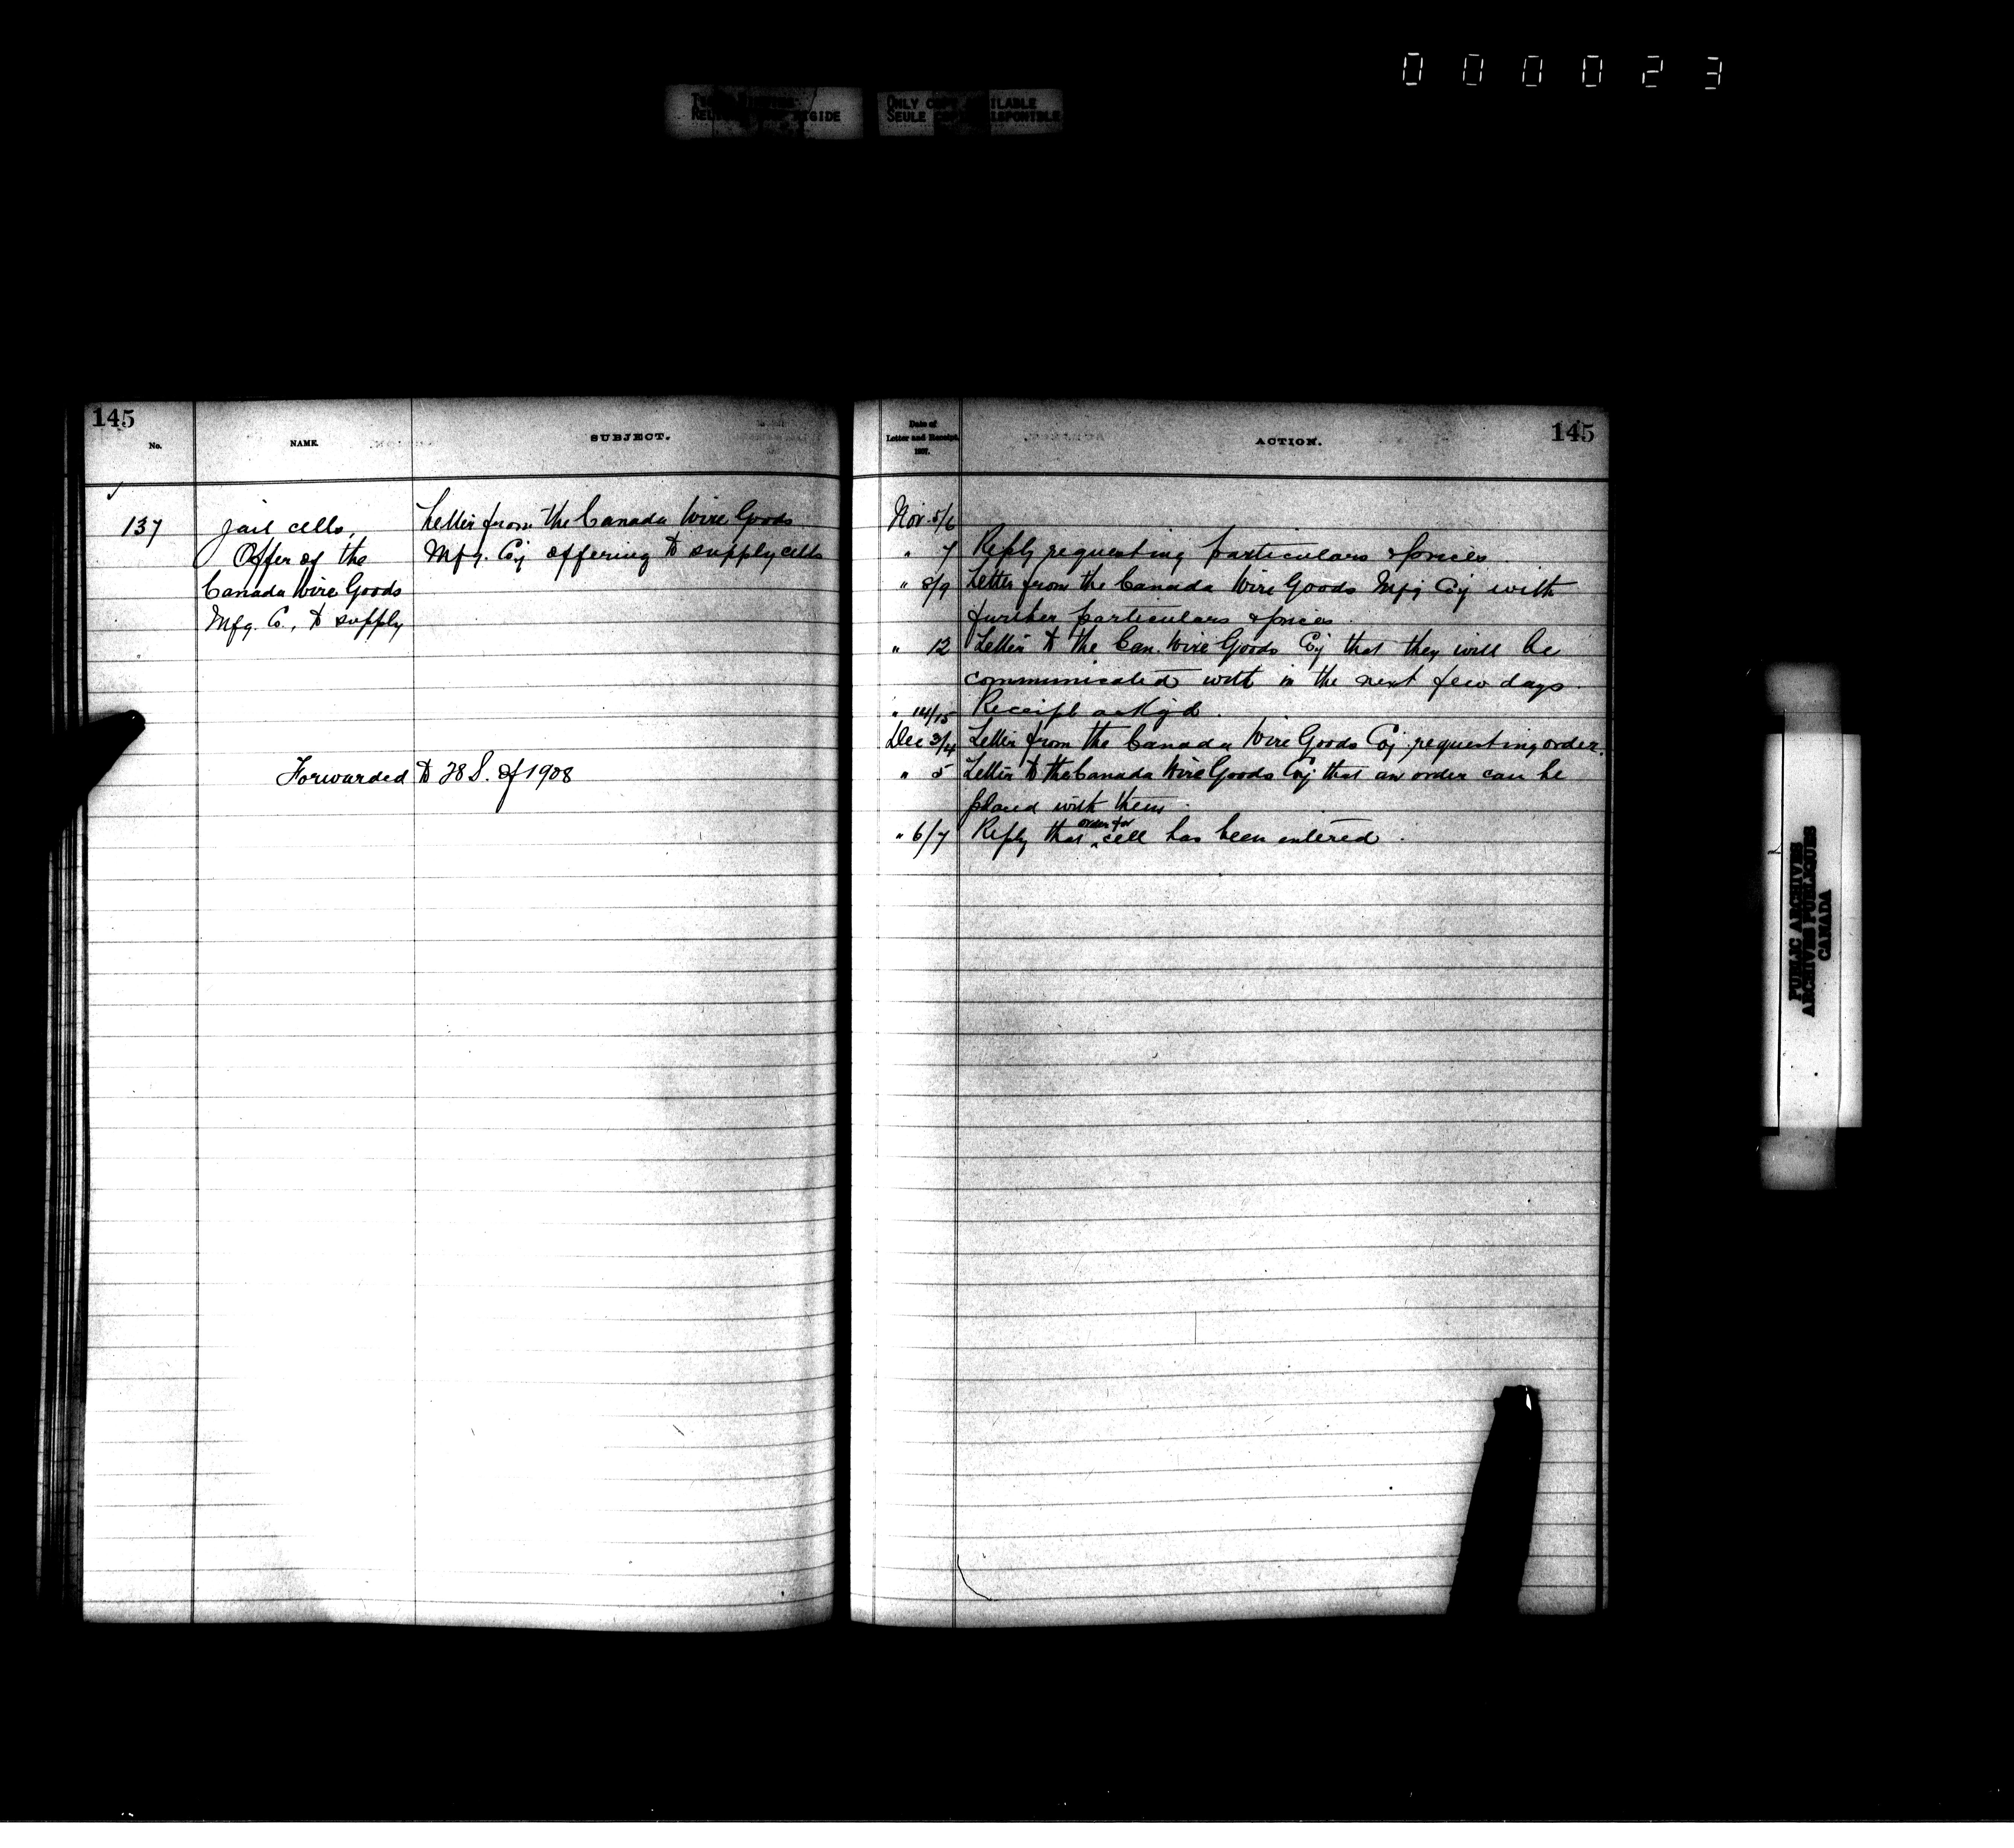 000023
ONLY COPY AVAILABLE
SEULE DISPONIBLE
145
No.
NAME.
SUBJECT.
137
Jail cells,
Offer of the
Canada Wire Goods
Mfg. Co., to supply
Letter from the Canada Wire Goods
Mfg. Coy offering to supply cells
Forwarded to 28 S. of 1908
Date of
Letter and Receipt,
1907.
ACTION.
145
Nov. 5/6
" 7 Reply requesting particulars & prices.
" 8/9 Letter from the Canada Wire Goods Mfg Coy with
further particulars & prices.
" 12 Letter to the Can. Wire Goods Coy that they will be
communicated with in the next few days.
" 14/15 Receipt ackg'd.
Dec 3/4 Letter from the Canada Wire Goods Coy. requesting order.
" 5 Letter to the Canada Wire Goods Coy. that an order can be
placed with them.
" 6/7 Reply that order for cell has been entered.
PUBLIC ARCHIVES
ARCHIVES PUBLIQUES
CANADA